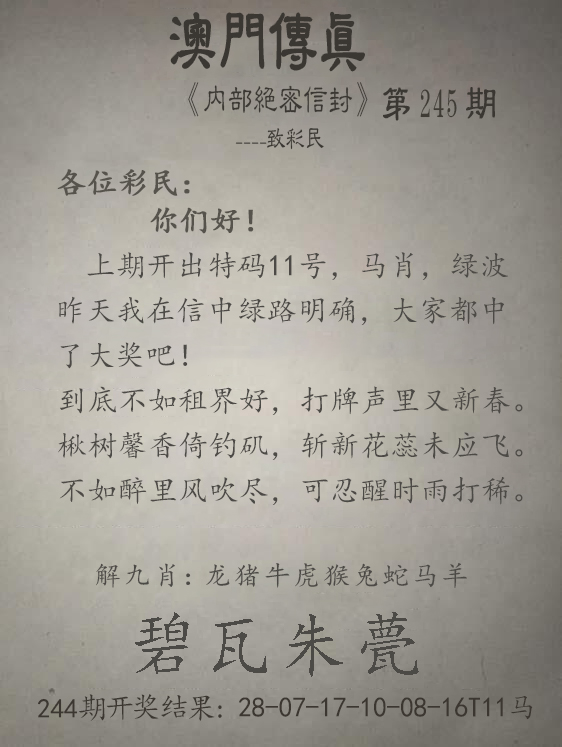 澳門傳真
《内部絕密信封》第245期
----致彩民
各位彩民：
你们好！
上期开出特码11号，马肖，绿波
昨天我在信中绿路明确，大家都中
了大奖吧！
到底不如租界好，打牌声里又新春。
楸树馨香倚钓矶，斩新花蕊未应飞。
不如醉里风吹尽，可忍醒时雨打稀。
解九肖：龙猪牛虎猴兔蛇马羊
碧瓦朱甍
244期开奖结果：28-07-17-10-08-16T11马